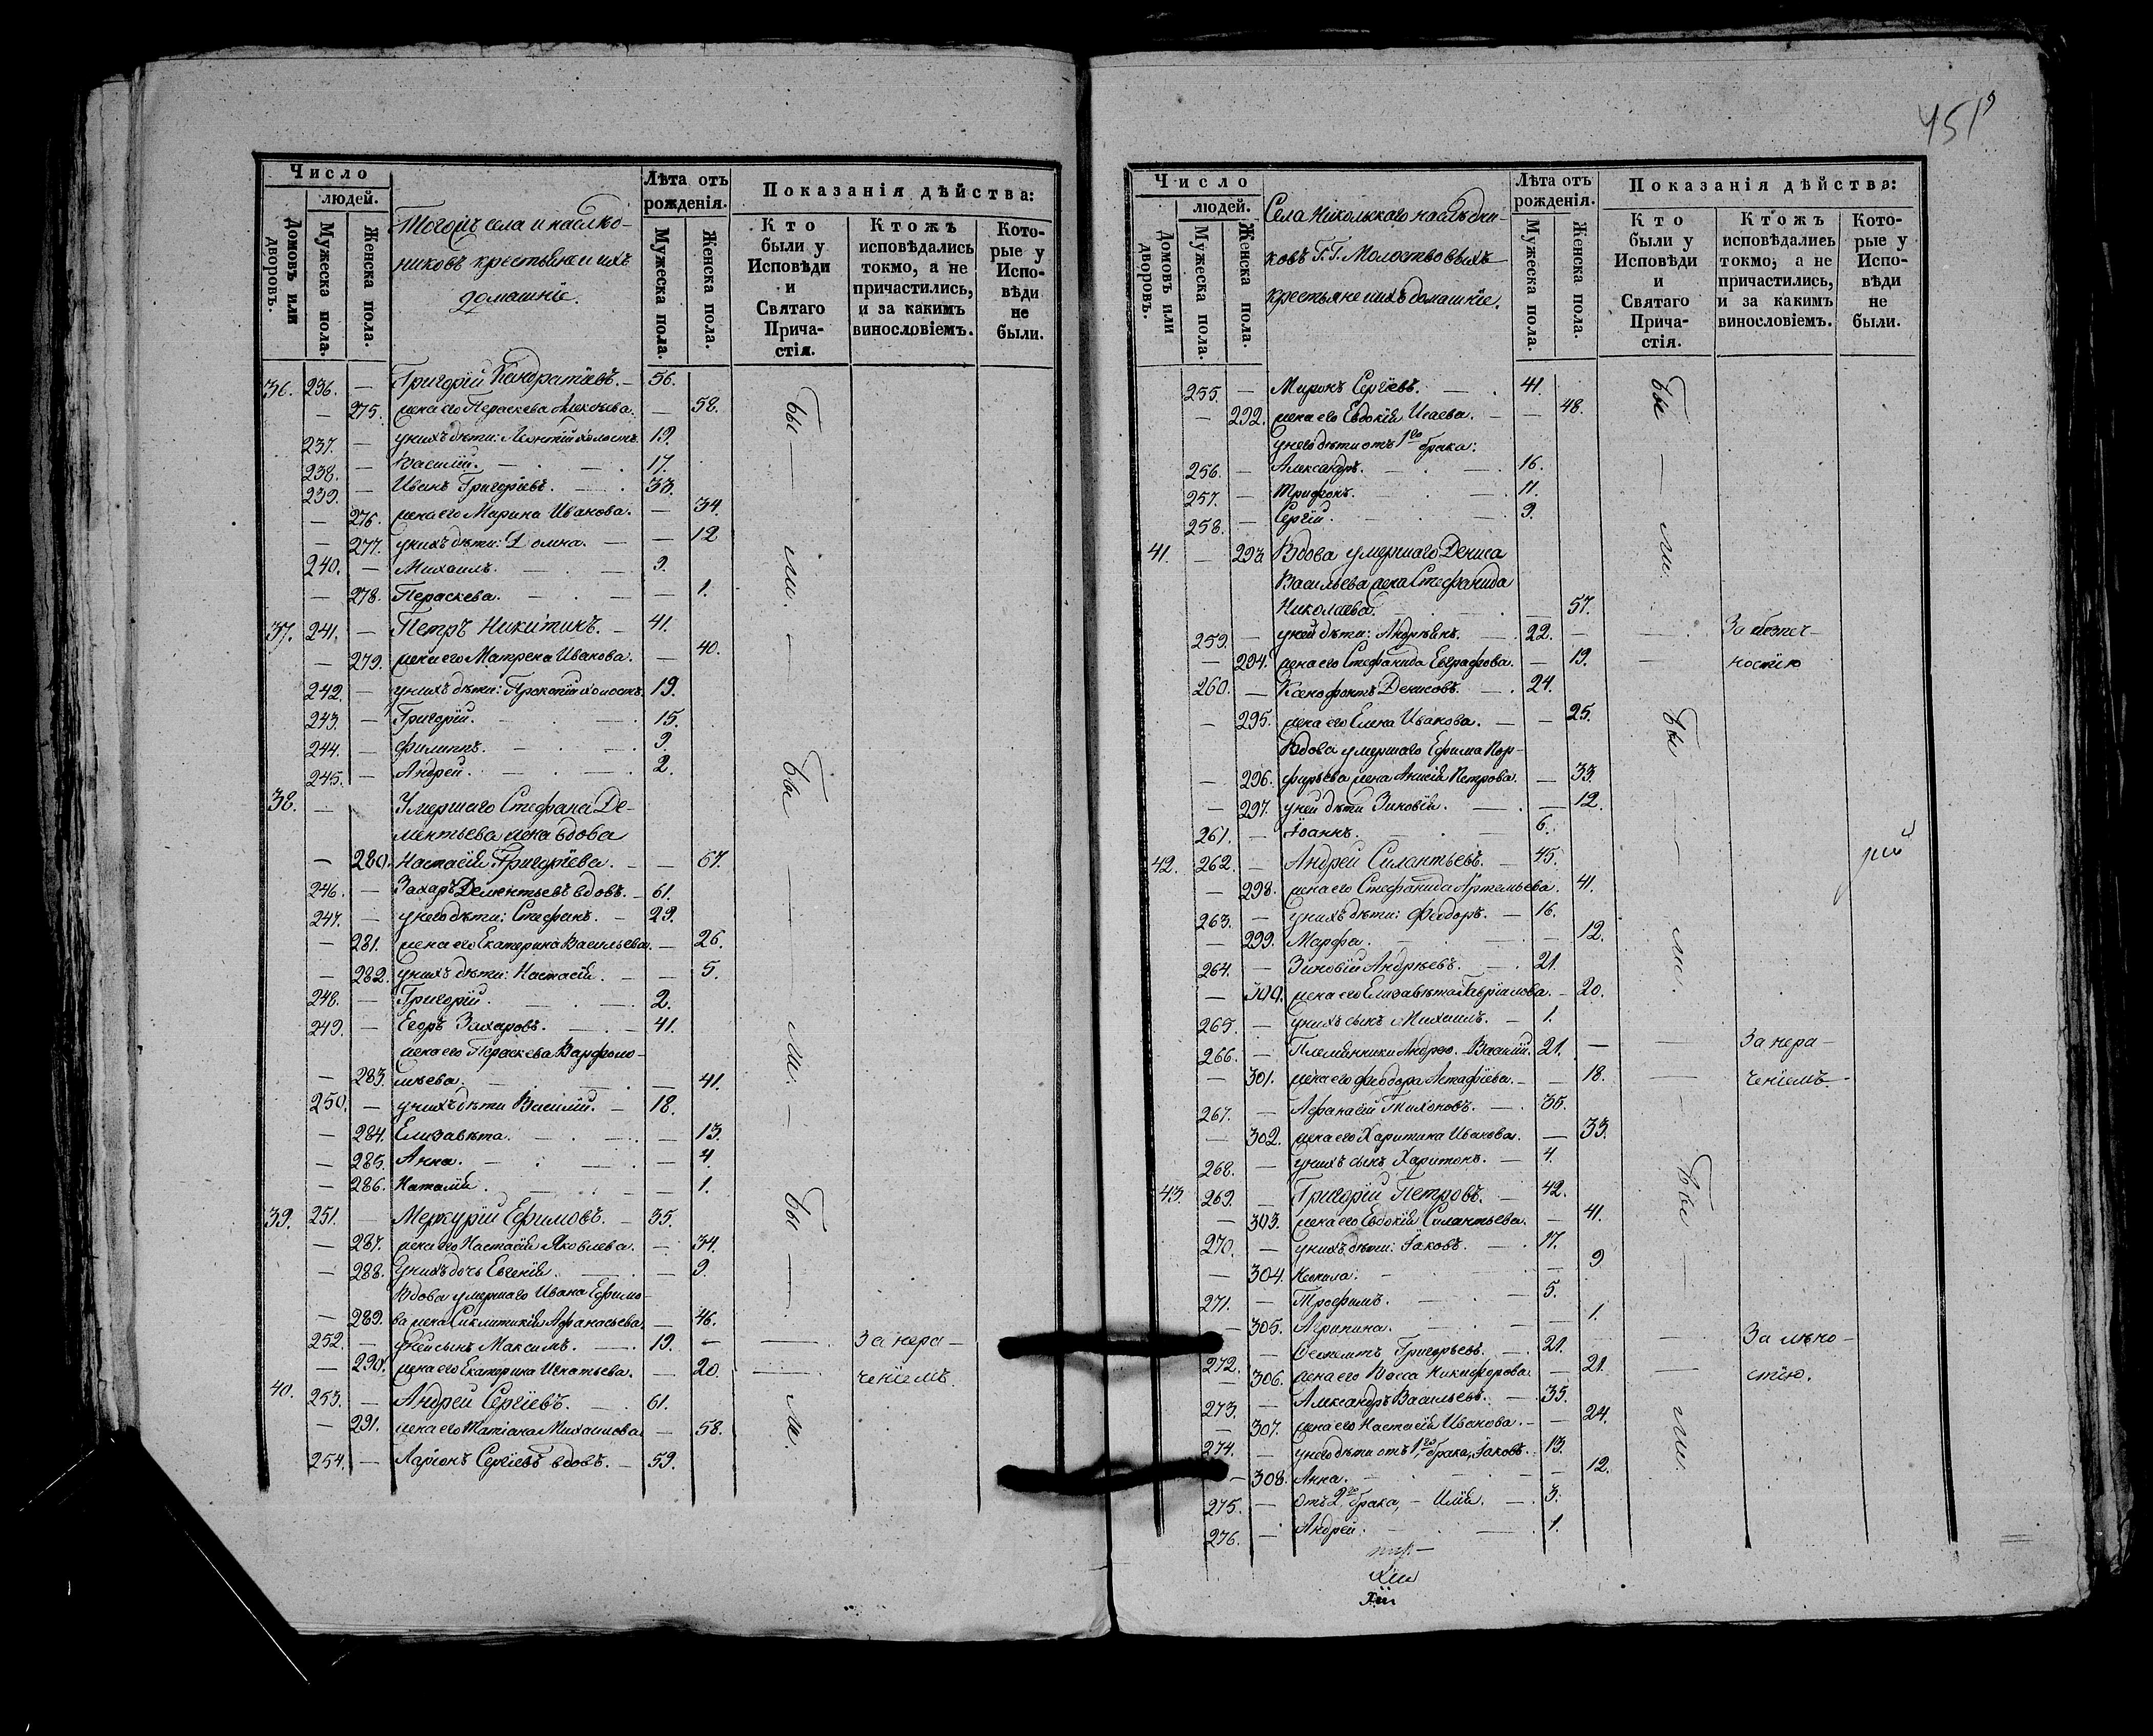 Число
людей.
Домовъ или дворовъ.
Мужеска пола.
Женска пола.
Тогожъ села и наслѣд-
никовъ крестьяне и ихъ
домашніе.
Лѣта отъ
рожденія.
Мужеска пола.
Женска пола.
Показанія дѣйства:
Кто были у Исповѣди и Святаго Прича-стія.
Ктожъ исповѣдались токмо, а не причастились, и за какимъ винословіемъ.
Кото-рые у Испо-вѣди не были.
36. 236. — Григорій Кондратіевъ. — 56.
— 275. жена его Параскева Алексѣева. — 58.
237. — у нихъ дѣти: Леонтій холостъ. 19.
238. — Василій. — 17.
239. — Иванъ Григорьевъ. — 33.
— 276. жена его Марина Иванова. — 34.
— 277. у нихъ дѣти: Домна. — 12
240. — Михаилъ. — 9.
— 278. Параскева. — 1.
37. 241. — Петръ Никитинъ. — 41.
— 279. жена его Матрена Иванова. — 40.
242. — у нихъ дѣти: Прокопій холостъ. 19.
243. — Григорій. — 15.
244. — Филиппъ. — 9.
245. — Андрей. — 2.
38. — Умершаго Стефана Де-
ментьева жена вдова
— 280. Настасія Григорьева. — 67.
246. — Захаръ Дементьевъ вдовъ. — 61.
247. — у него дѣти: Стефанъ. — 29.
— 281. жена его Екатерина Васильева. — 26.
— 282. у нихъ дѣти: Настасія. — 5.
248. — Григорій. — 2.
249. — Егоръ Захаровъ. — 41.
жена его Параскева Варфоло-
— 283. мѣева. — 41.
250. — у нихъ дѣти Василій. — 18.
— 284. Елизавѣта. — 13.
— 285. Анна. — 4.
— 286. Наталія. — 1.
39. 251. — Меркурій Ефимовъ. — 35.
— 287. жена его Настасія Яковлева. — 34.
— 288. У нихъ дочь Евгенія. — 9.
Вдова умершаго Ивана Ефимо-
— 289. ва жена Синклитикія Афанасьева. — 46.
252. — у ней сынъ Максимъ. — 19. — За нера-
— 290. жена его Екатерина Игнатьева. — 20. — ченіемъ.
40. 253. — Андрей Сергіевъ. — 61.
— 291. жена его Татіана Михаилова. — 58.
254. — Ларіонъ Сергіевъ вдовъ. — 59.
бы — ли.
бы — ли.
бы — ли.
451
Число
людей.
Домовъ или дворовъ.
Мужеска пола.
Женска пола.
Села Никольскаго наслѣдни-
ковъ Г.Г. Молоствовыхъ
крестьяне и ихъ домашніе.
Лѣта отъ
рожденія.
Мужеска пола.
Женска пола.
Показанія дѣйства:
Кто были у Исповѣди и Святаго Прича-стія.
Ктожъ исповѣдались токмо, а не причастились, и за какимъ винословіемъ.
Кото-рые у Испо-вѣди не были.
255. — Миронъ Сергіевъ. — 41.
— 292. жена его Евдокія Исаева. — 48.
У него дѣти отъ 1го брака:
256. — Александръ. — 16.
257. — Трифонъ. — 11.
258. — Сергій. — 9.
41. — 293. Вдова умершаго Дениса
Васильева жена Стефанида
Николаева. — 57.
259. — у ней дѣти: Андреянъ. — 22. — За безпеч-
— 294. жена его Стефанида Евграфова. — 19. — ностію
260. — Ксенофонтъ Денисовъ. — 24.
— 295. жена его Елена Иванова. — 25.
Вдова умершаго Ефима Пор-
— 296. фирьева жена Анисія Петрова. — 33.
— 297. у ней дѣти Зиновія. — 12.
261. — Іоаннъ. — 6.
42. 262. — Андрей Силантьевъ. — 45.
— 298. жена его Стефанида Артемьева. 41.
263. — у нихъ дѣти: Ѳеодоръ. — 16.
— 299. Марфа. — 12.
264. — Зиновій Андреевъ. — 21.
— 300. жена его Елизавѣта Гавріилова. — 20.
265. — у нихъ сынъ Михаилъ. — 1.
266. — Племянники Андрею. Василій. 21. — За нера-
— 301. жена его Ѳеодора Астафіева. — 18. — ченіемъ.
267. — Афанасій Тихоновъ. — 35.
— 302. жена его Харитина Иванова. — 33.
268. — у нихъ сынъ Харитонъ. — 4.
43. 269. — Григорій Петровъ. — 42.
— 303. жена его Евдокія Силантьева. — 41.
270. — у нихъ дѣти: Іаковъ. — 17.
— 304. Неонила. — 9
271. — Трофимъ. — 5.
— 305. Агрипина. — 1.
272. — Григорьевъ. — 21. — За лѣно-
— 306. жена его Васса Никифорова. 21. — стію.
273. — Александръ Васильевъ. — 35.
— 307. жена его Настасія Иванова. — 24.
274. — у него дѣти отъ 1го брака, Іаковъ. 13.
— 308. Анна. — 12.
275. — отъ 2го брака, — Илія. — 3.
276. — Андрей. — 1.
бы — ли.
бы — ли.
бы — ли.